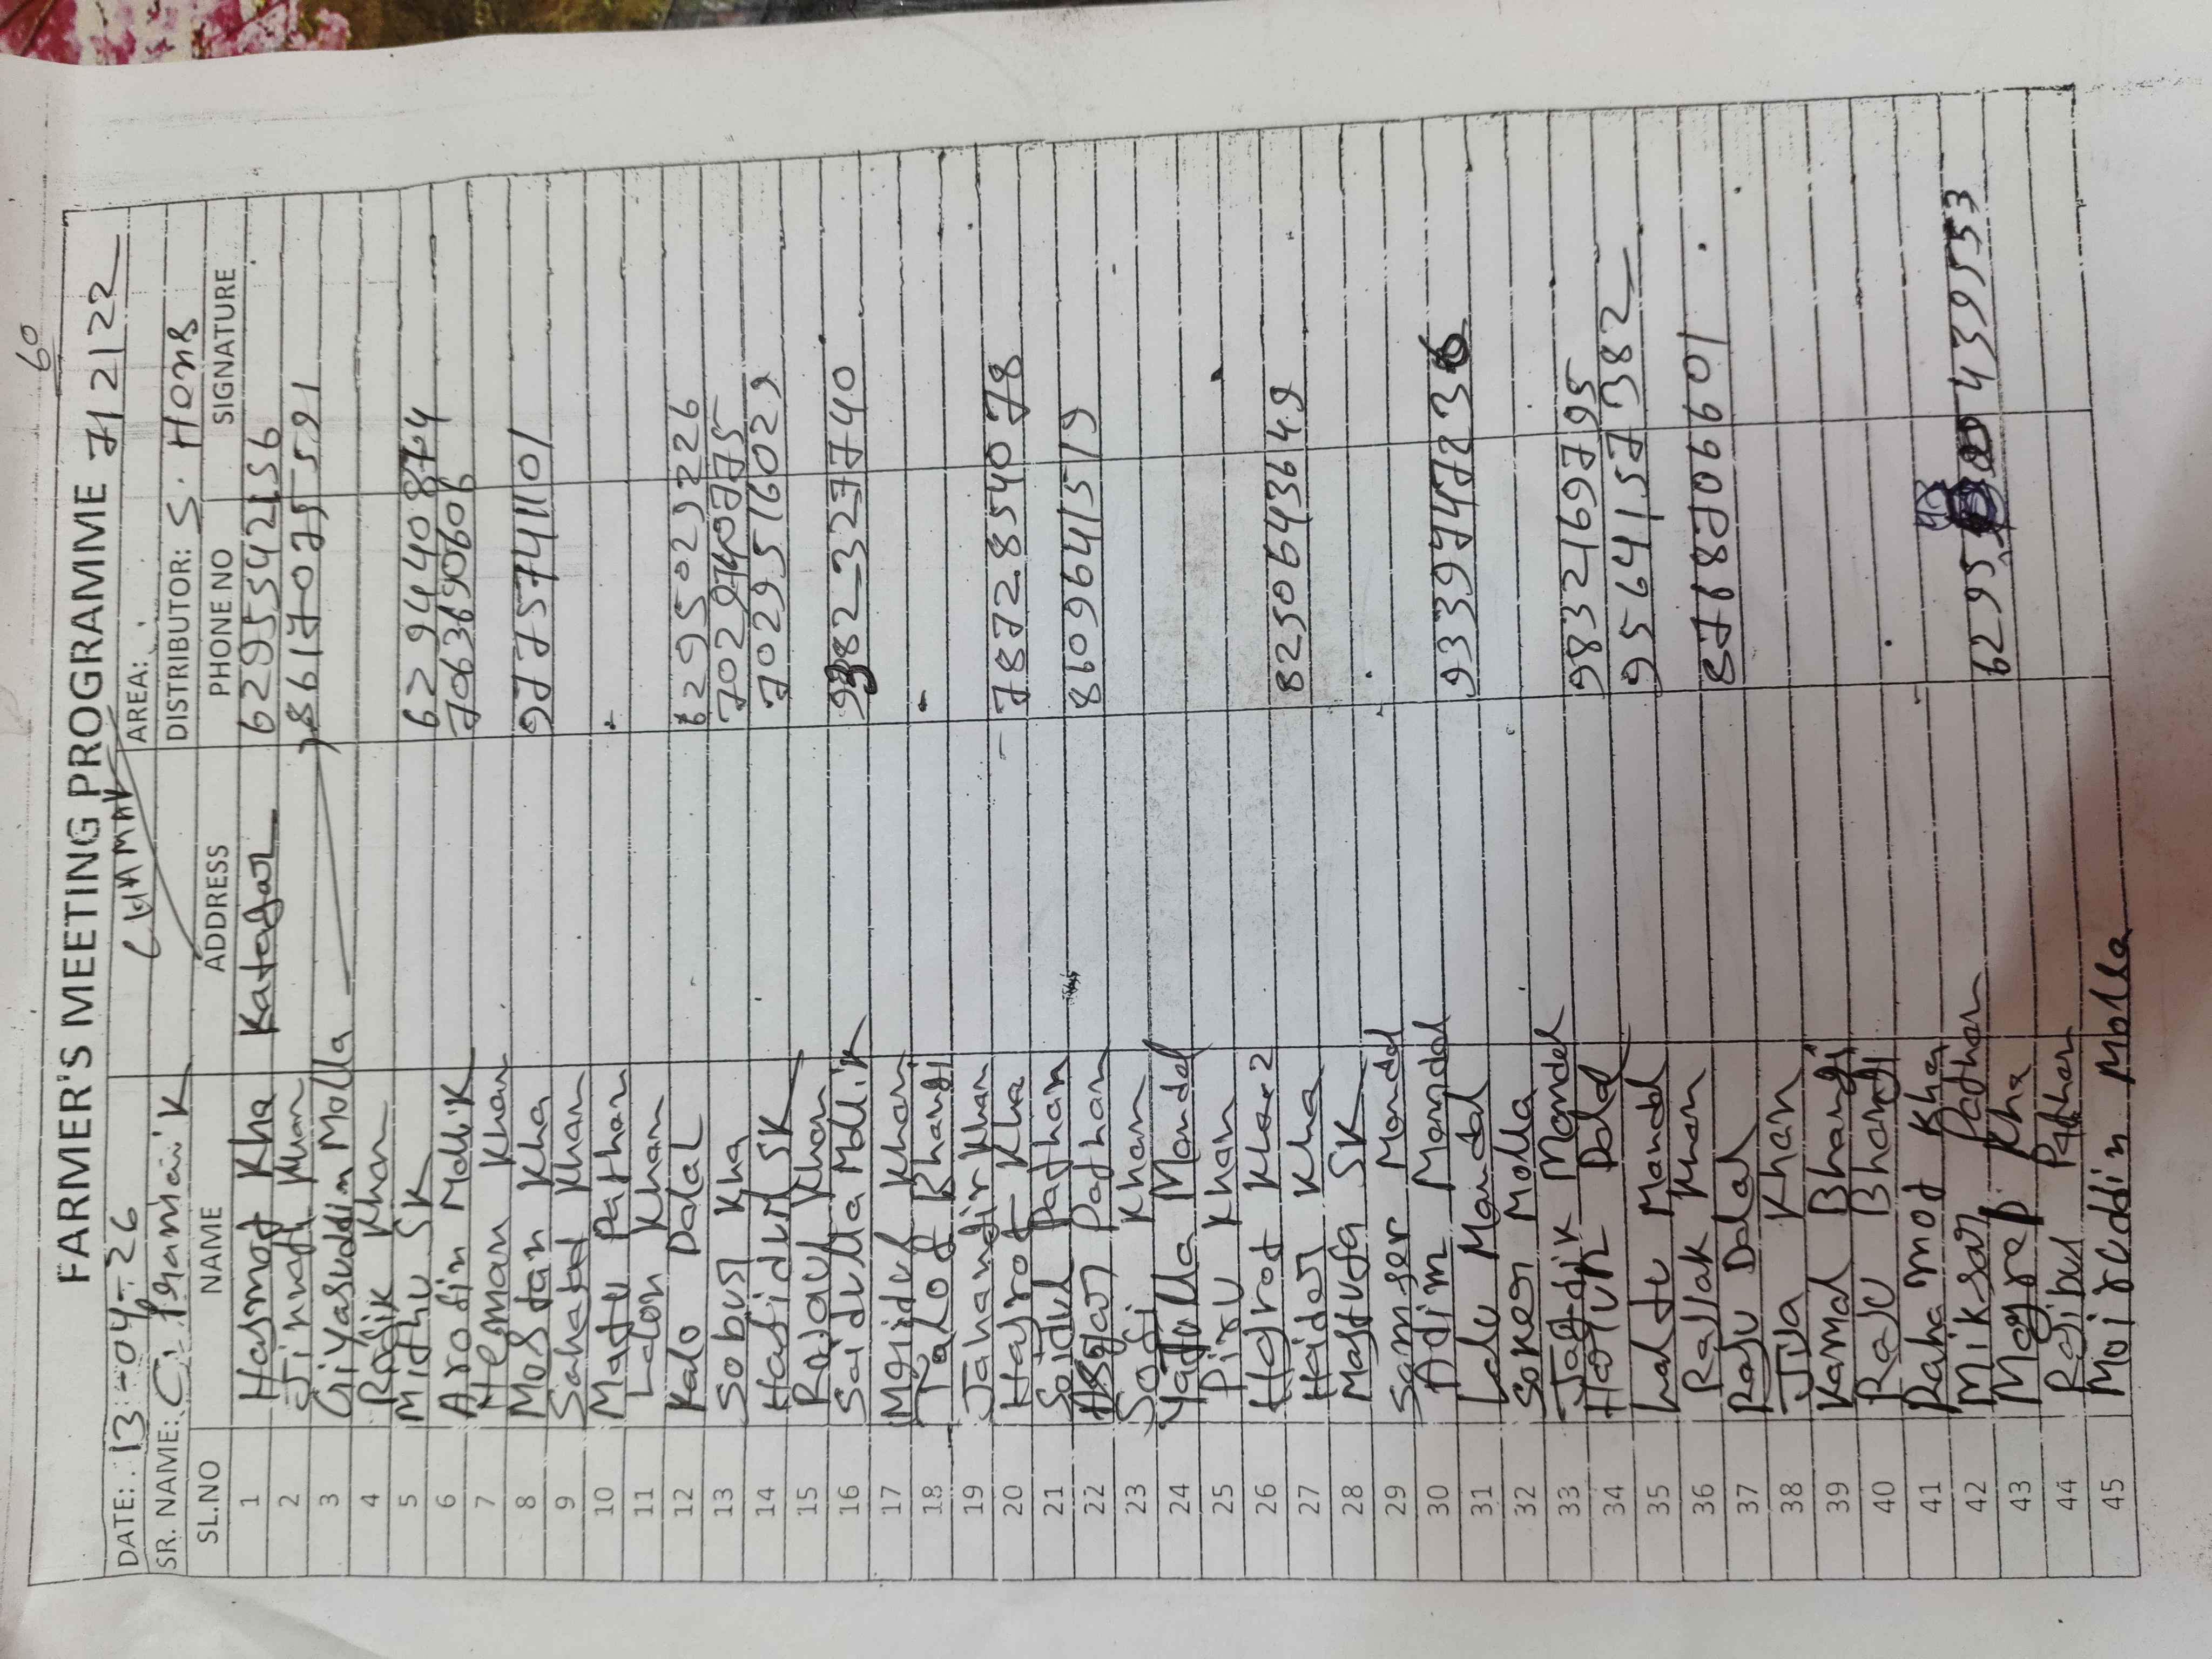 60
FARMER'S MEETING PROGRAMME 712122
DATE: 13-04-26 AREA:
SR. NAME: C. Pramanik DISTRIBUTOR: S. Hens
SL.NO NAME ADDRESS PHONE NO SIGNATURE
1 Hasmot Kha Katagar 6295542156
2 Jinnat Khan 8617075591
3 Giyasuddin Molla
4 Rafik Khan
5 Mithu SK 6294408774
6 Arofin Mallik 7063690606
7 Heman Khan
8 Mostan Kha 9775741101
9 Sahated Khan
10 Matu Pathan
11 Lalon Khan
12 Kalo Dalal 6295029226
13 Sobur Kha 7029740775
14 Hasidul SK 7029516029
15 Rajau Khan
16 Saidulla Mallik 9382327740
17 Moijdul Khan
18 Talof Bhangi
19 Jahangir Khan
20 Hasrot Kha 7872854078
21 Soidul Pathan
22 Asgar Pathan 8109641519
23 Sofi Khan
24 Yadulla Mandal
25 Piru Khan
26 Hajrot Khan 2 8250643649
27 Haider Kha
28 Mastufa SK
29 Samser Mondal
30 Adim Mondal 9339747236
31 Lalu Mandal
32 Soker Molla
33 Jag-dik Mandal 9832169795
34 Harun Dalal 9564157382
35 Laltu Mandal
36 Rajjak Khan 8768706601
37 Raju Dalal
38 Jula Khan
39 Kamal Bhangi
40 Raju Bhangi
41 Rahamot Kha
42 Miksar Pathan 6295 439553
43 Mograp Kha
44 Rajibul Pathan
45 Moiruddin Molla